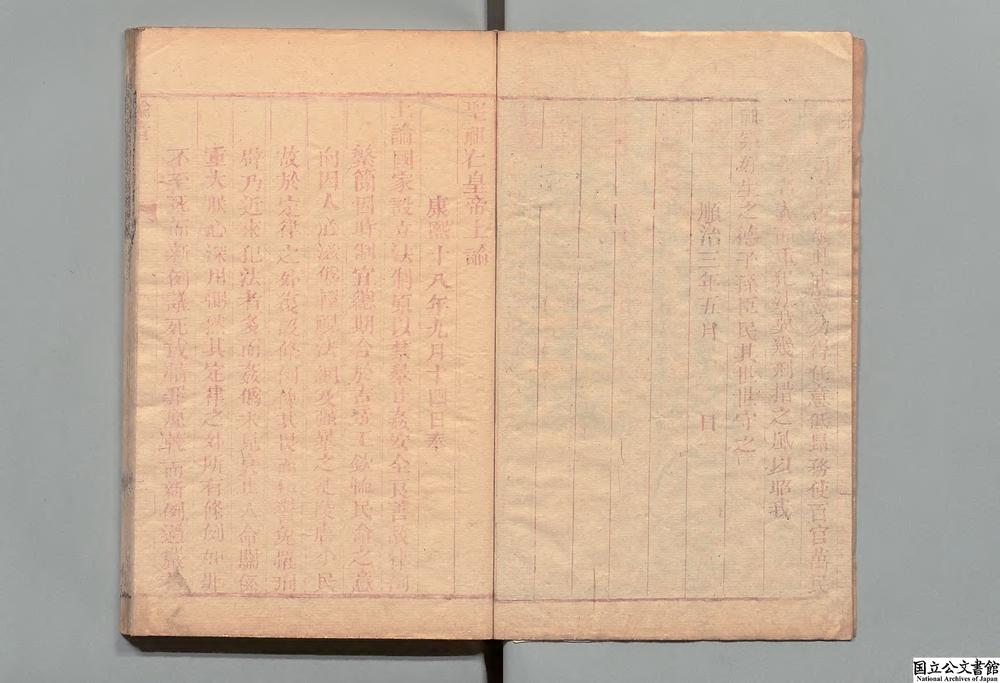 勿得任意低昂務使百官萬民
而重犯法冀幾刑措之風以昭我
祖宗好生之德子孫臣民其世世守之
順治三年五月 日
聖祖仁皇帝上諭
康熙十八年九月十四日奉
上諭國家設立法制原以禁暴止姦安全良善故律例
繁簡因時制宜總期合於古帝王欽恤民命之意
向因人心滋僞輕視法網及強暴之徒陵虐小民
故於定律之外復設條例俾其畏而知警免罹刑
辟乃近來犯法者多而姦僞未見衰息人命關係
重大朕心深用惻然其定律之外所有條例如罪
不至死而新例議死或情罪原輕而新例過嚴者
国立公文書館
National Archives of Japan